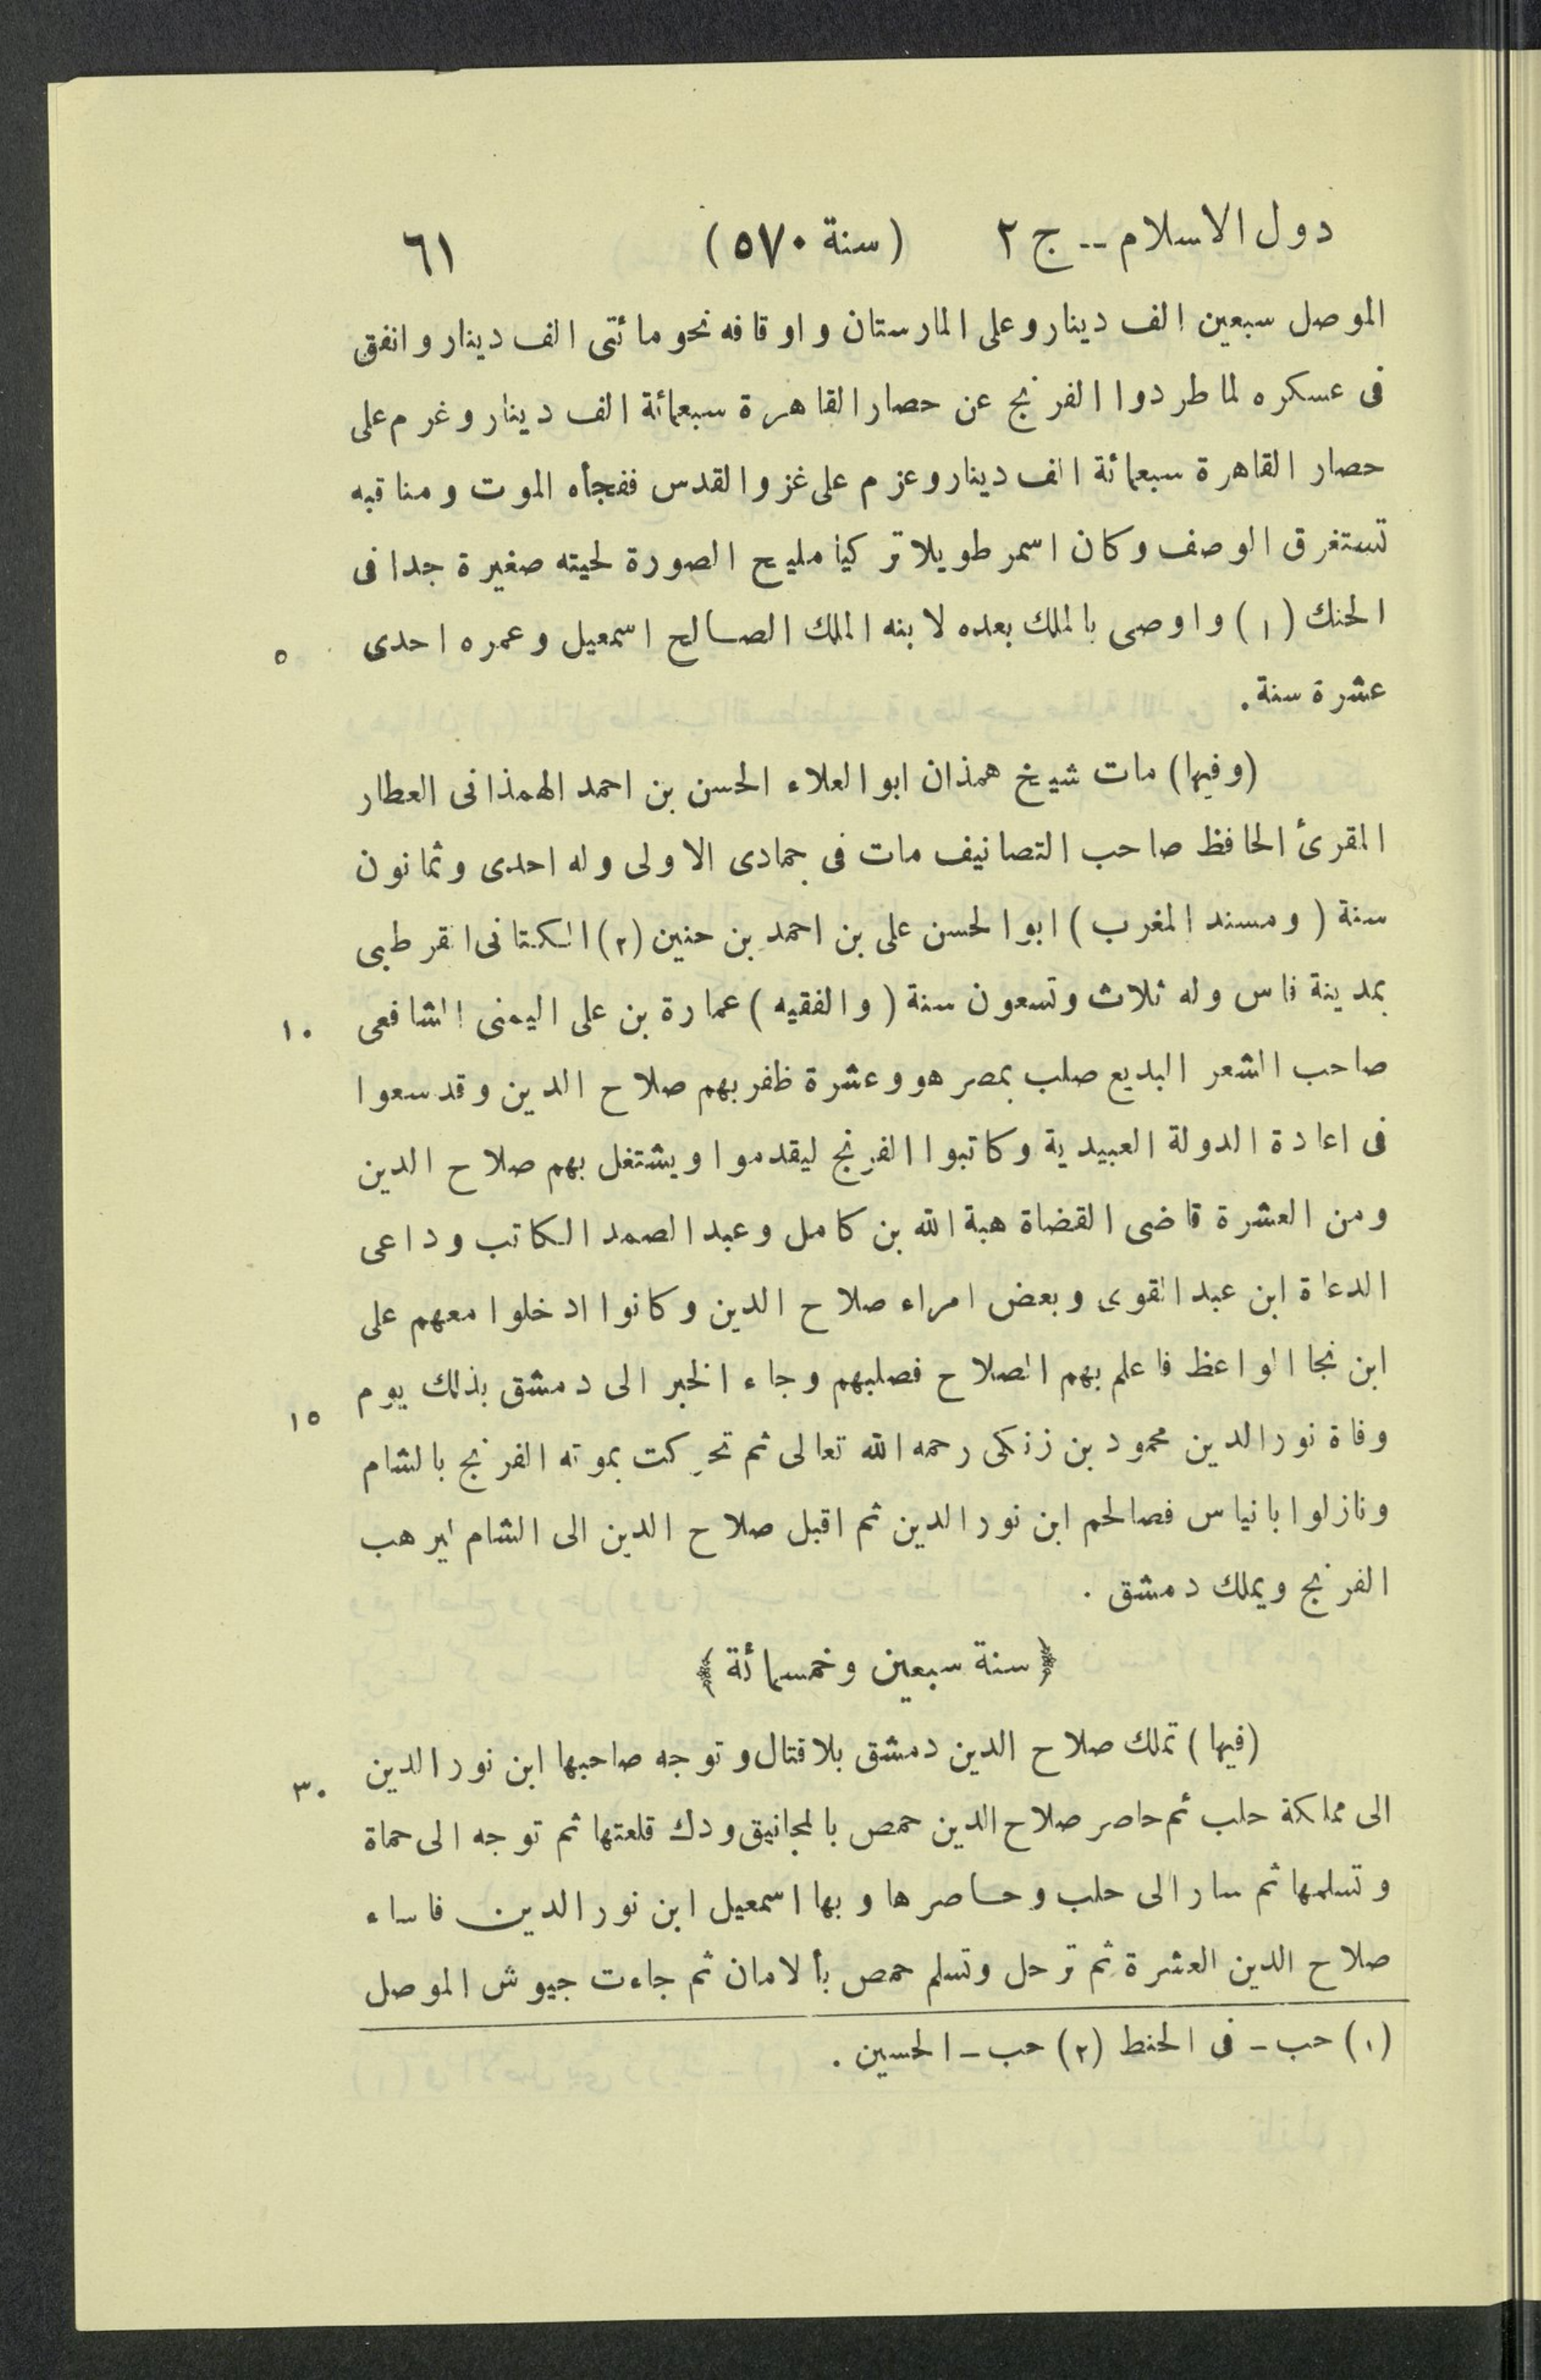 دول الاسلام -- ج ٢ (سنة ٥٧٠) ٦١
الموصل سبعين الف دينار وعلى المارستان واوقافه نحو مائتى الف دينار وانفق
فى عسكره لما طردوا الفرنج عن حصار القاهرة سبعمائة الف دينار وغرم على
حصار القاهرة سبعمائة الف دينار وعزم على غزو القدس ففجأه الموت ومناقبه
تستغرق الوصف وكان اسمر طويلا تركيا مليح الصورة لحيته صغيرة جدا فى
الحنك (١) واوصى بالملك بعده لابنه الملك الصالح اسمعيل وعمره احدى ٥
عشرة سنة.
(وفيها) مات شيخ همذان ابو العلاء الحسن بن احمد الهمذانى العطار
المقرئ الحافظ صاحب التصانيف مات فى جمادى الاولى وله احدى وثمانون
سنة (ومسند المغرب) ابو الحسن على بن احمد بن حنين (٢) الكتانى القرطبى
بمدينة فاس وله ثلاث وتسعون سنة (والفقيه) عمارة بن على اليمنى الشافعى ١٠
صاحب الشعر البديع صلب بمصر هو وعشرة ظفر بهم صلاح الدين وقد سعوا
فى اعادة الدولة العبيدية وكاتبوا الفرنج ليقدموا ويشتغل بهم صلاح الدين
ومن العشرة قاضى القضاة هبة الله بن كامل وعبد الصمد الكاتب وداعى
الدعاة ابن عبد القوى وبعض امراء صلاح الدين وكانوا ادخلوا معهم على
ابن نجا الواعظ فاعلم بهم الصلاح فصلبهم وجاء الخبر الى دمشق بذلك يوم ١٥
وفاة نور الدين محمود بن زنكى رحمه الله تعالى ثم تحركت بموته الفرنج بالشام
ونازلوا بانياس فصالحم ابن نور الدين ثم اقبل صلاح الدين الى الشام ليرهب
الفرنج ويملك دمشق .
﴿سنة سبعين وخمسمائة﴾
(فيها) تملك صلاح الدين دمشق بلا قتال وتوجه صاحبها ابن نور الدين ٣٠
الى مملكة حلب ثم حاصر صلاح الدين حمص بالمجانيق ودك قلعتها ثم توجه الى حماة
وتسلمها ثم سار الى حلب وحاصرها وبها اسمعيل ابن نور الدين فاساء
صلاح الدين العشرة ثم ترحل وتسلم حمص بألامان ثم جاءت جيوش الموصل
(١) حب - فى الحنط (٢) حب - الحسين .